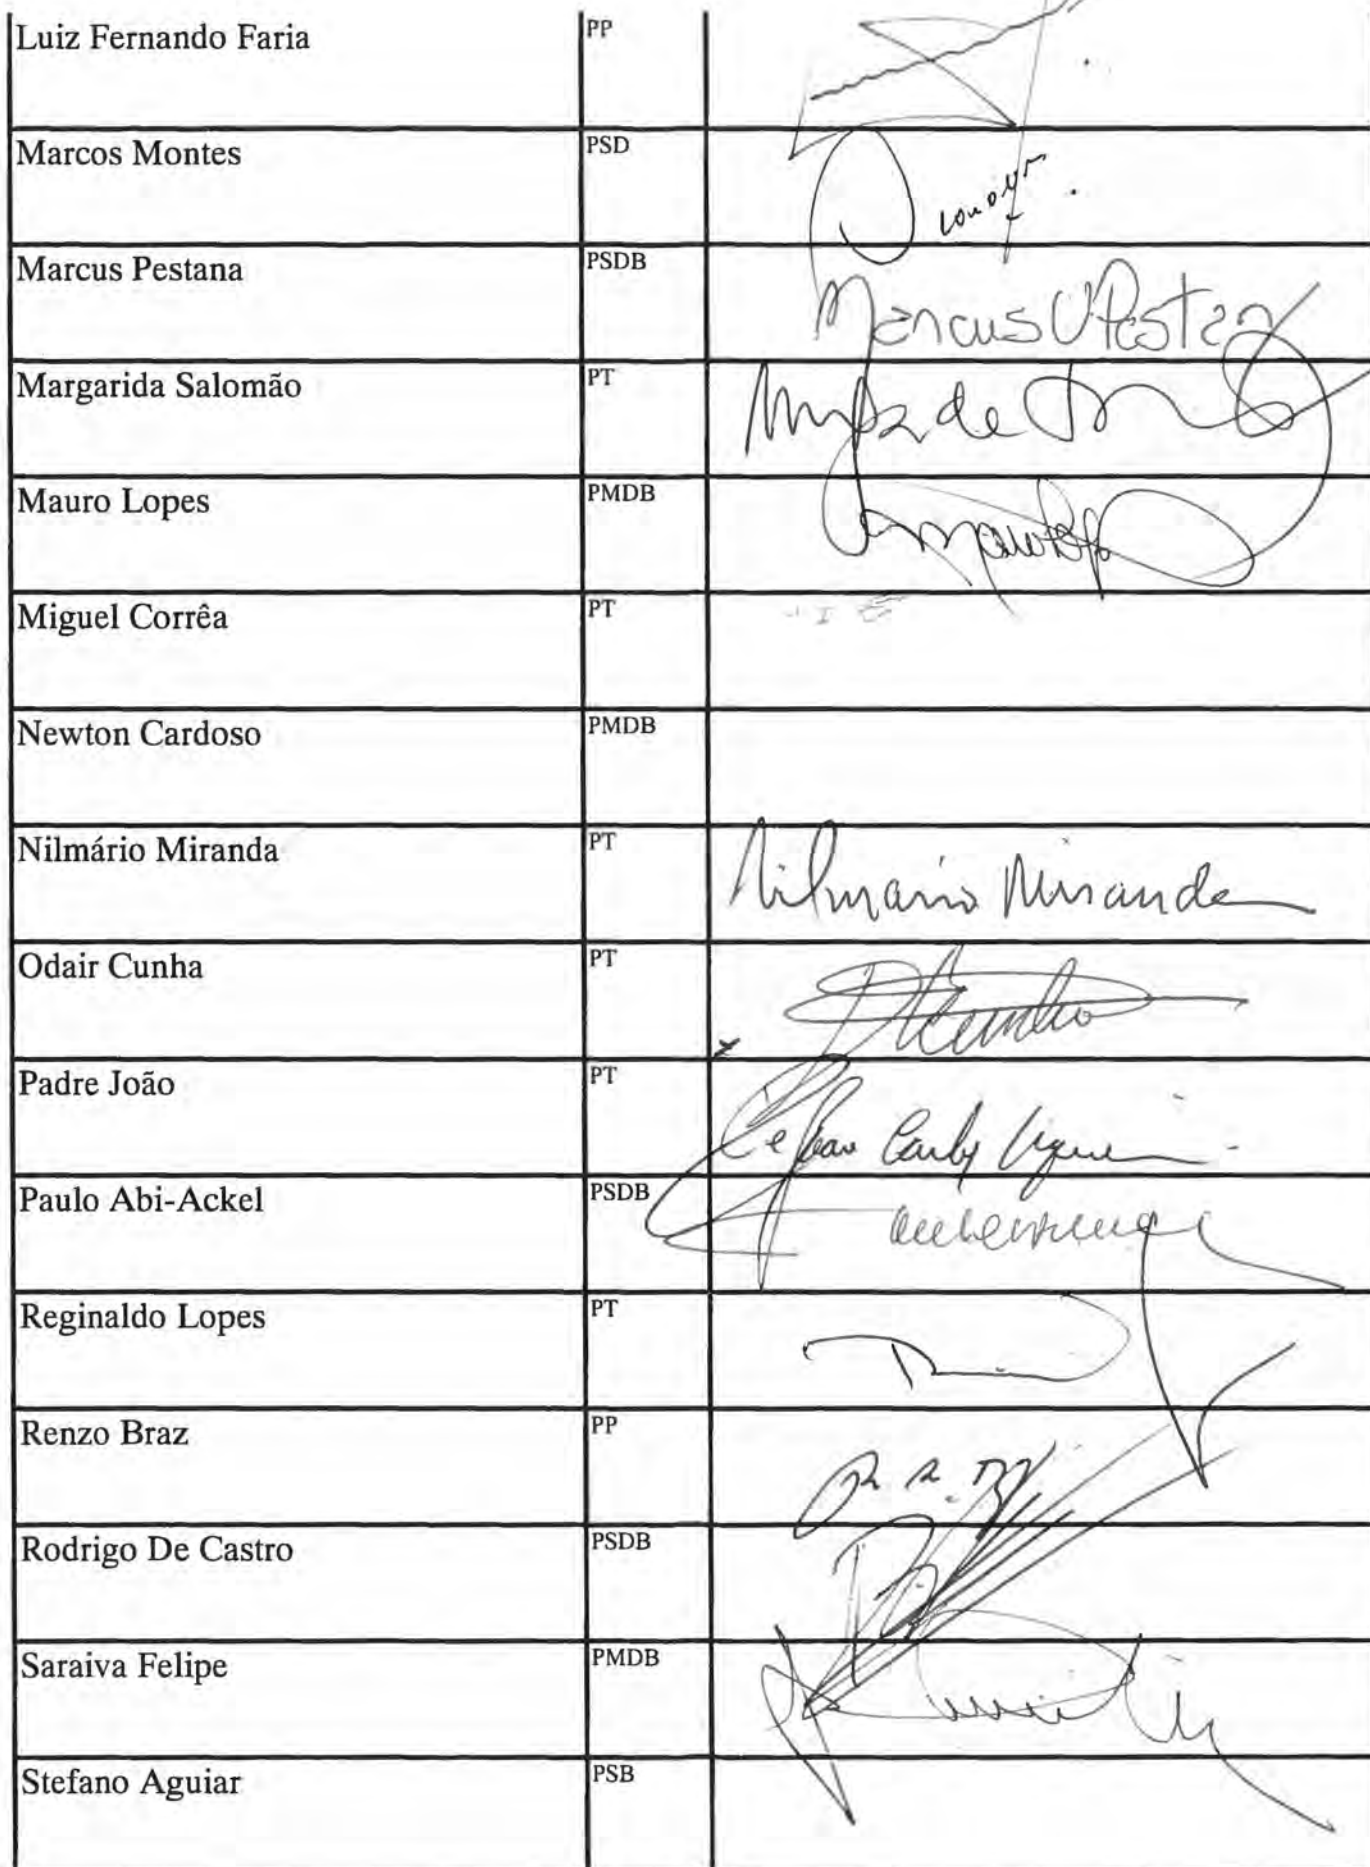 Luiz Fernando Faria PP
Marcos Montes PSD
Marcus Pestana PSDB Marcus V Pestana
Margarida Salomão PT
Mauro Lopes PMDB
Miguel Corrêa PT
Newton Cardoso PMDB
Nilmário Miranda PT Nilmário Miranda
Odair Cunha PT
Padre João PT Pe João Carlos
Paulo Abi-Ackel PSDB
Reginaldo Lopes PT
Renzo Braz PP
Rodrigo De Castro PSDB
Saraiva Felipe PMDB
Stefano Aguiar PSB